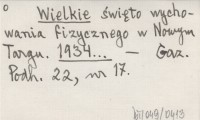 o
Wielkie święto wycho-
wania fizycznego w Nowym
Targu. 1934... — Gaz.
Podh. 22, nr 17.
bil/049/0413